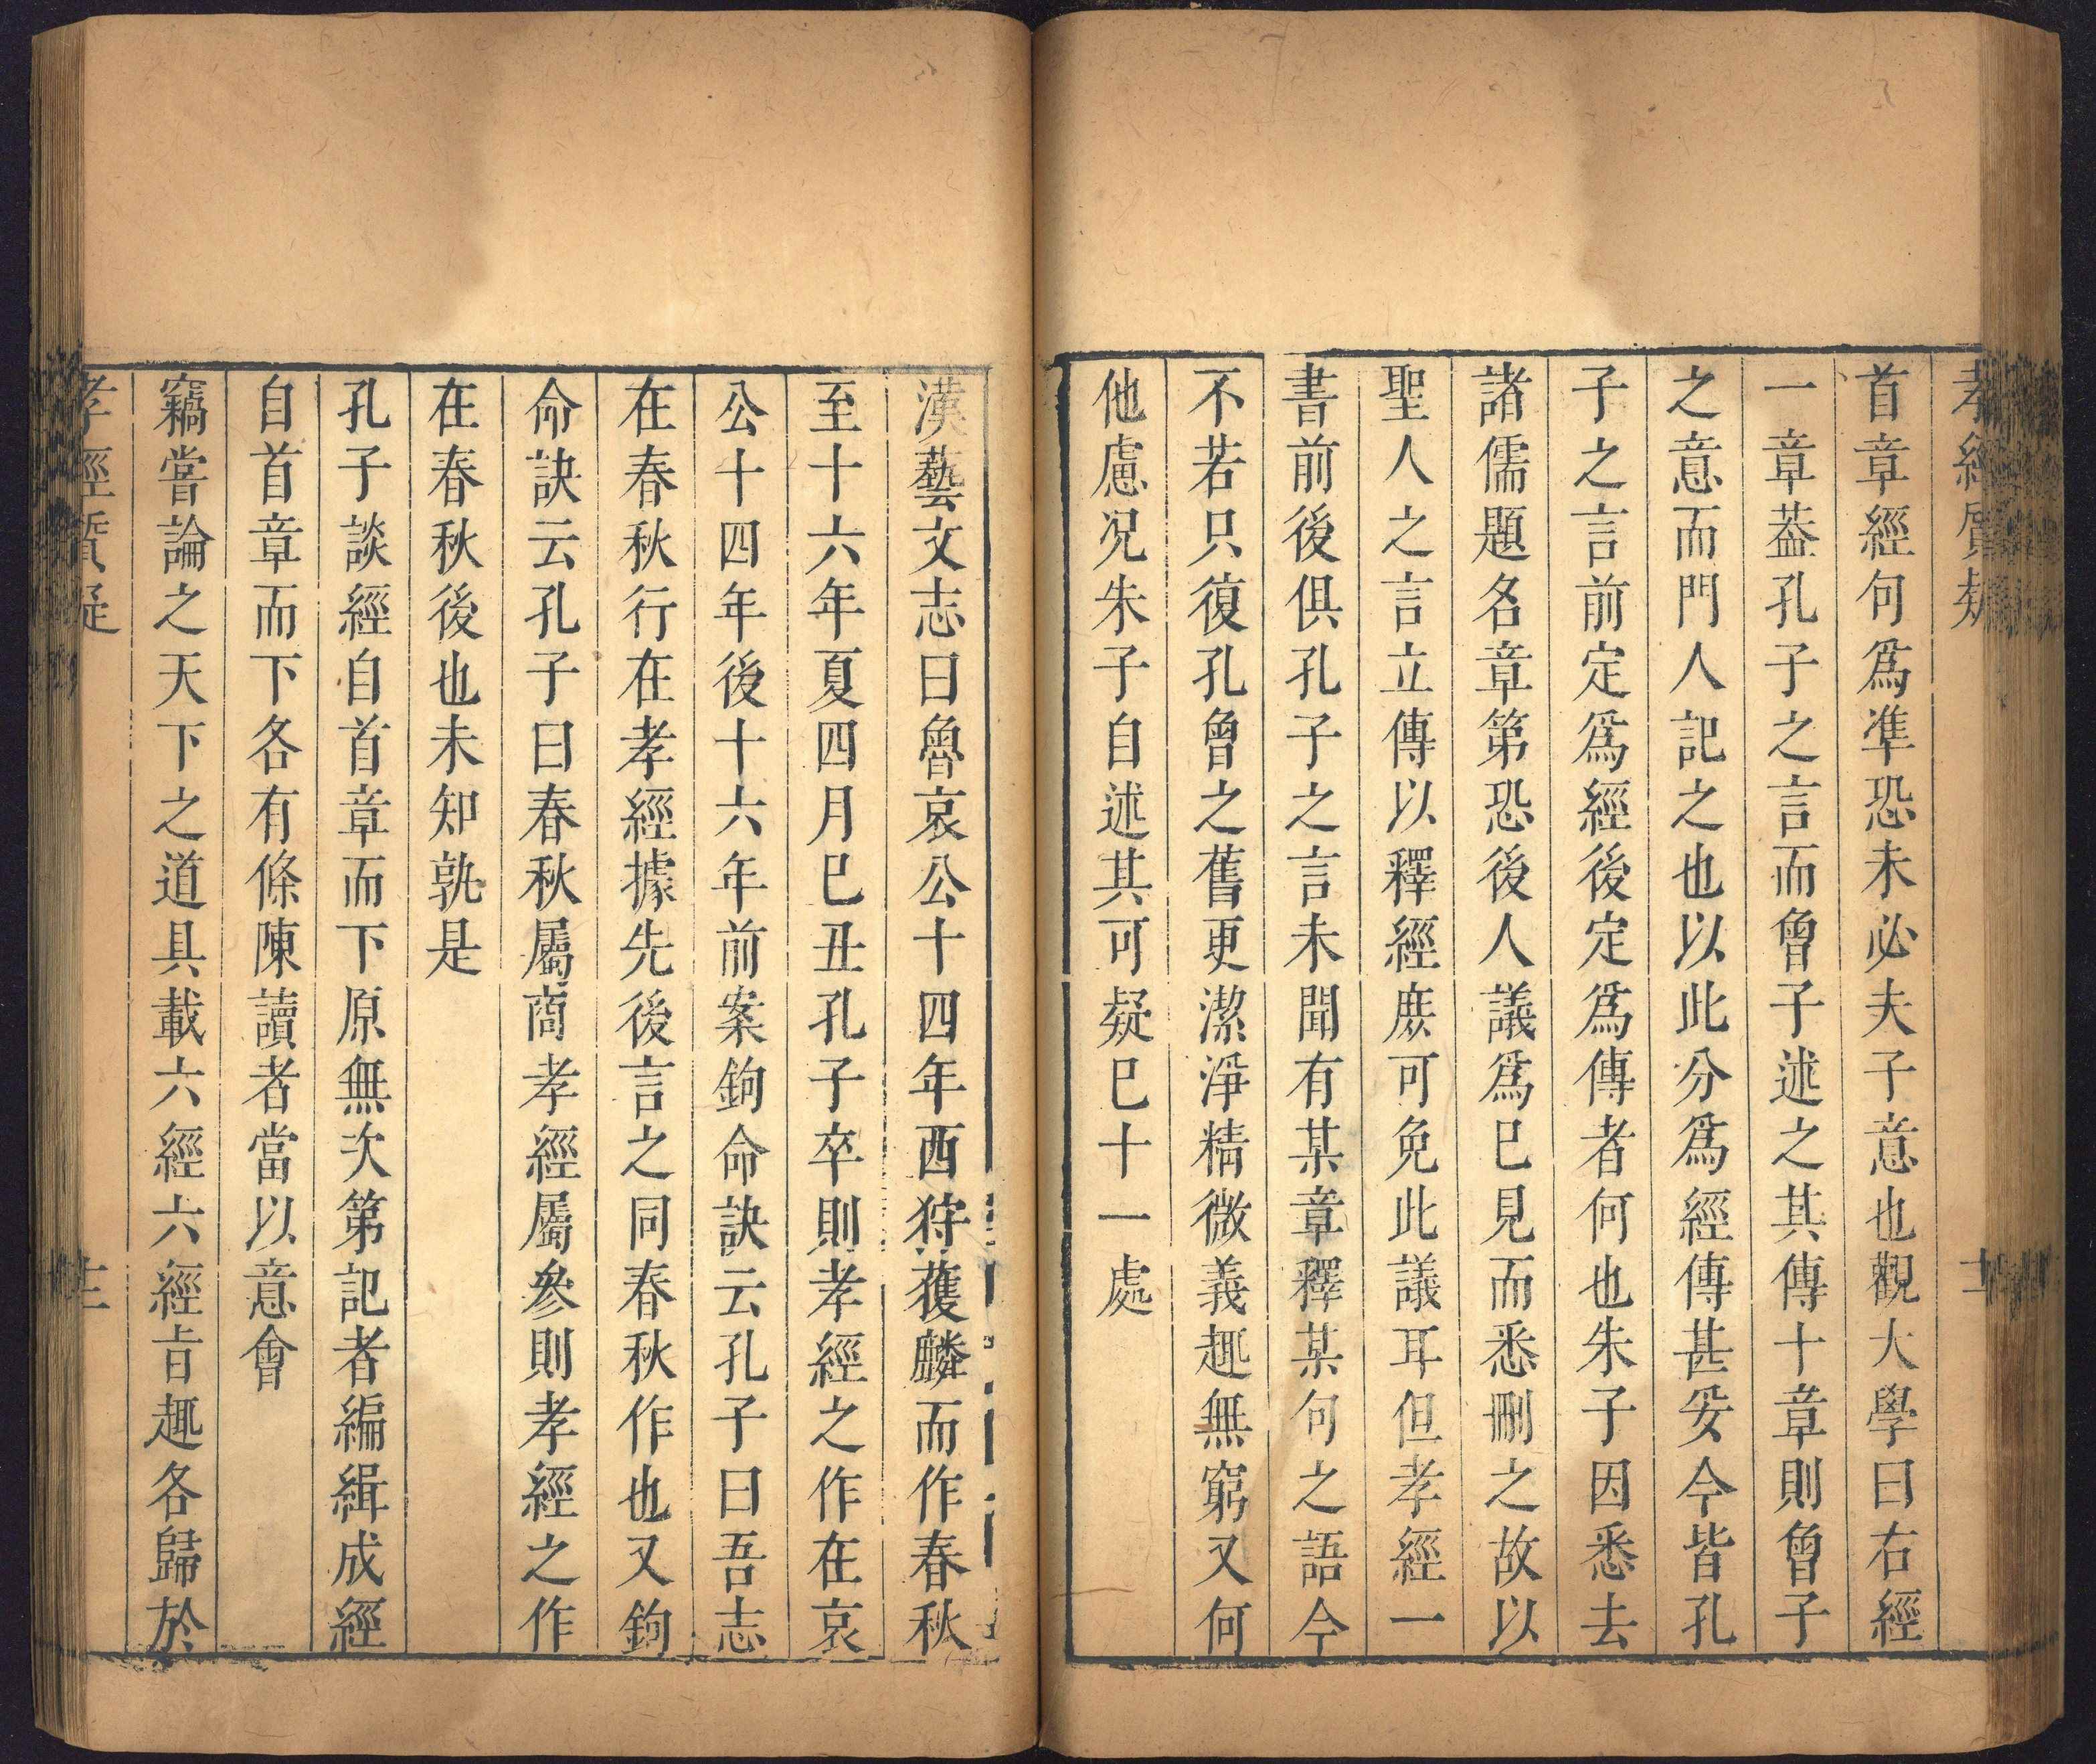 孝經質疑 十二
首章經句爲準恐未必夫子意也觀大學曰右經
一章葢孔子之言而曾子述之其傳十章則曾子
之意而門人記之也以此分爲經傳甚妥今皆孔
子之言前定爲經後定爲傳者何也朱子因悉去
諸儒題名章第恐後人議爲巳見而悉刪之故以
聖人之言立傳以釋經庶可免此議耳但孝經一
書前後俱孔子之言未聞有某章釋某句之語今
不若只復孔曾之舊更潔淨精微義趣無窮又何
他慮况朱子自述其可疑巳十一處
漢藝文志曰魯哀公十四年西狩獲麟而作春秋
至十六年夏四月巳丑孔子卒則孝經之作在哀
公十四年後十六年前案鉤命訣云孔子曰吾志
在春秋行在孝經據先後言之同春秋作也又鉤
命訣云孔子曰春秋屬商孝經屬參則孝經之作
在春秋後也未知孰是
孔子談經自首章而下原無次第記者編緝成經
自首章而下各有條陳讀者當以意會
竊嘗論之天下之道具載六經六經㫖趣各歸於
孝經質疑